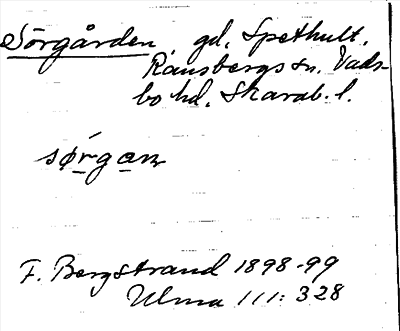 Sörgården, gd, Spethult,
Ransbergs sn. Vads-
bo hd. Skarab. l.
sørgan
F. Bergstrand 1898-99
Ulma 111: 328